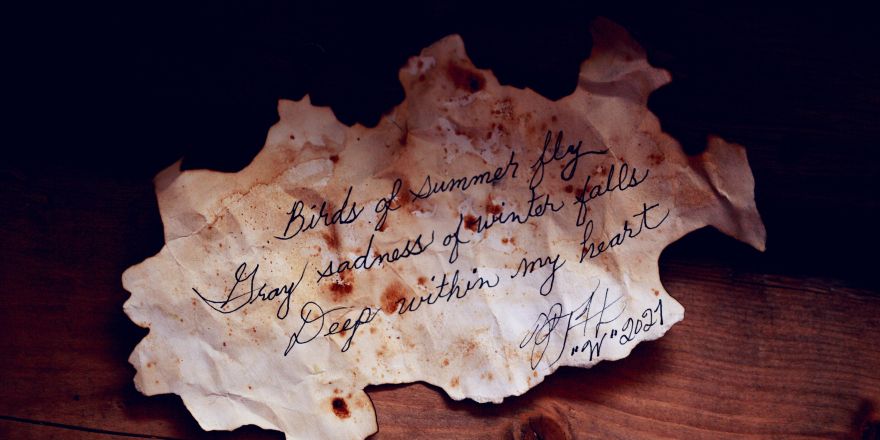 Birds of summer fly
Gray sadness of winter falls
Deep within my heart
"W" 2021